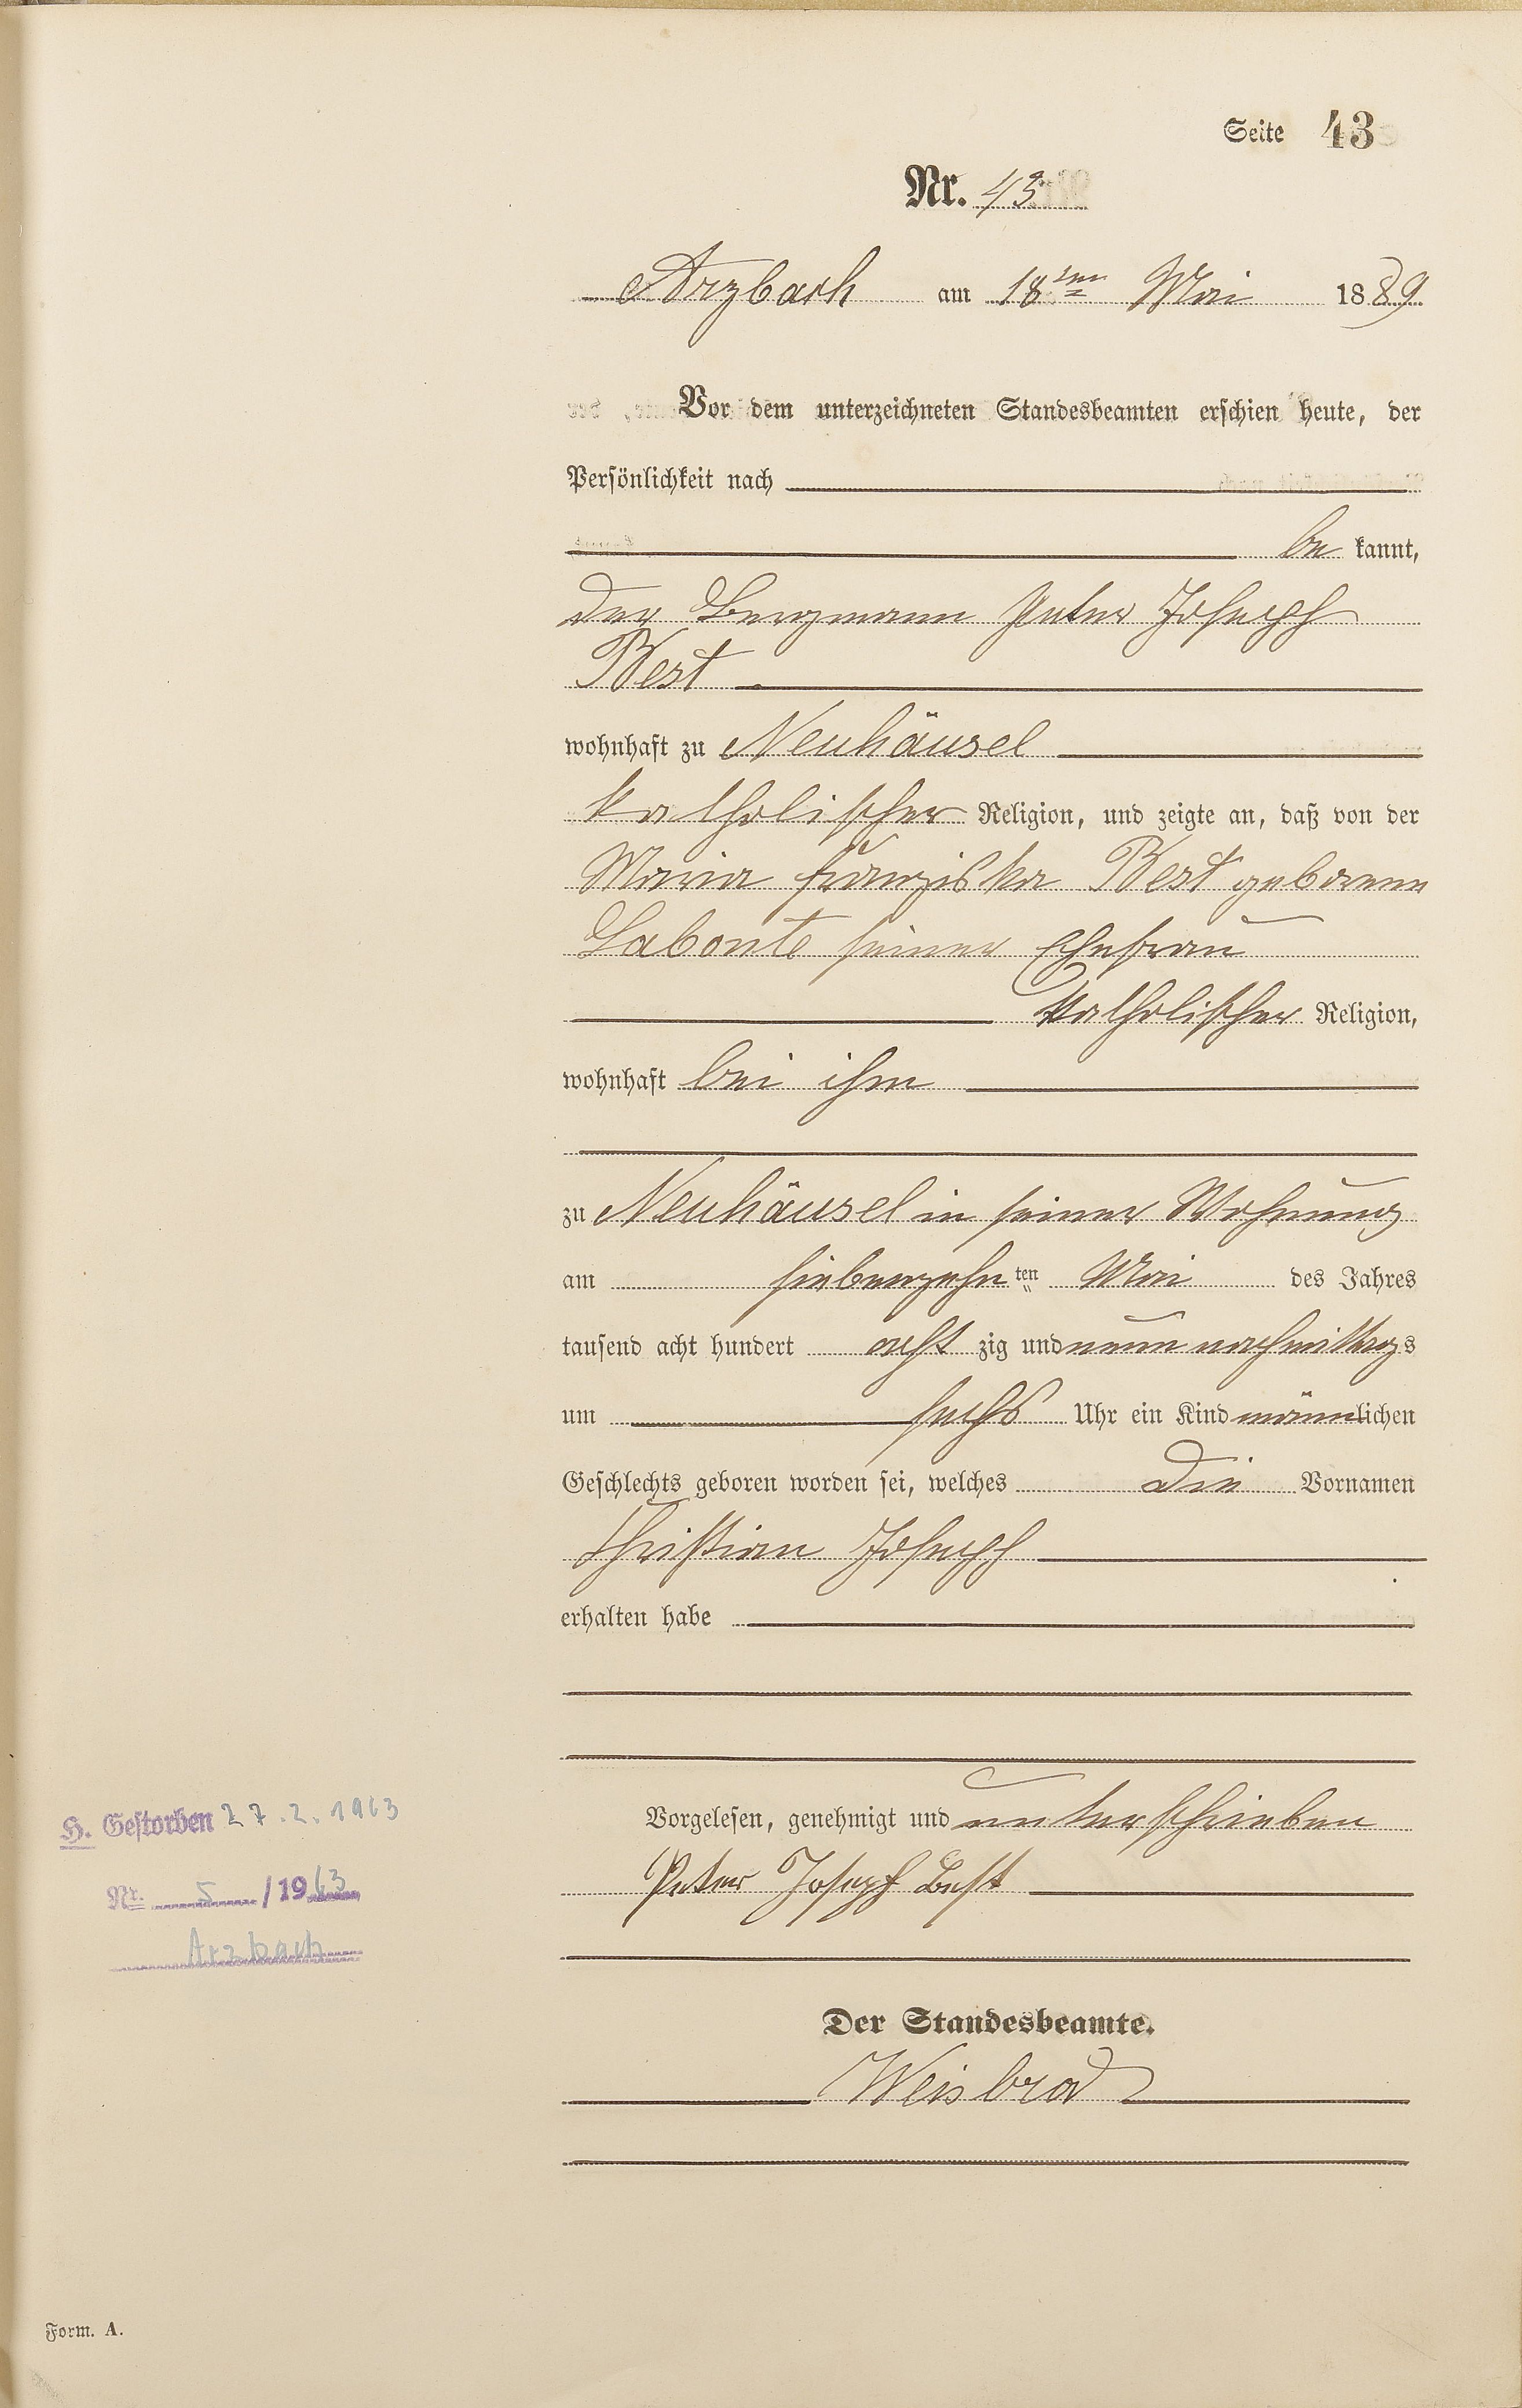 Seite 43
Nr. 43
Arzbach am 18ten Mai 1889
Vor dem unterzeichneten Standesbeamten erschien heute, der
Persönlichkeit nach
be kannt,
der Bergmann Peter Joseph
Best
wohnhaft zu Neuhäusel
katholischer Religion, und zeigte an, daß von der
Maria Franziska Best geborene
Labonte seiner Ehefrau
katholischer Religion,
wohnhaft bei ihm
zu Neuhäusel in seiner Wohnung
am siebenzehn ten Mai des Jahres
tausend acht hundert acht zig und neun nachmittags
um sechs Uhr ein Kind männlichen
Geschlechts geboren worden sei, welches die Vornamen
Christian Joseph
erhalten habe
Vorgelesen, genehmigt und unterschrieben
Peter Joseph Best
Der Standesbeamte.
Weisbrod
H. Gestorben 27.2.1963
Nr. 5 /1963
Arzbach
Form. A.